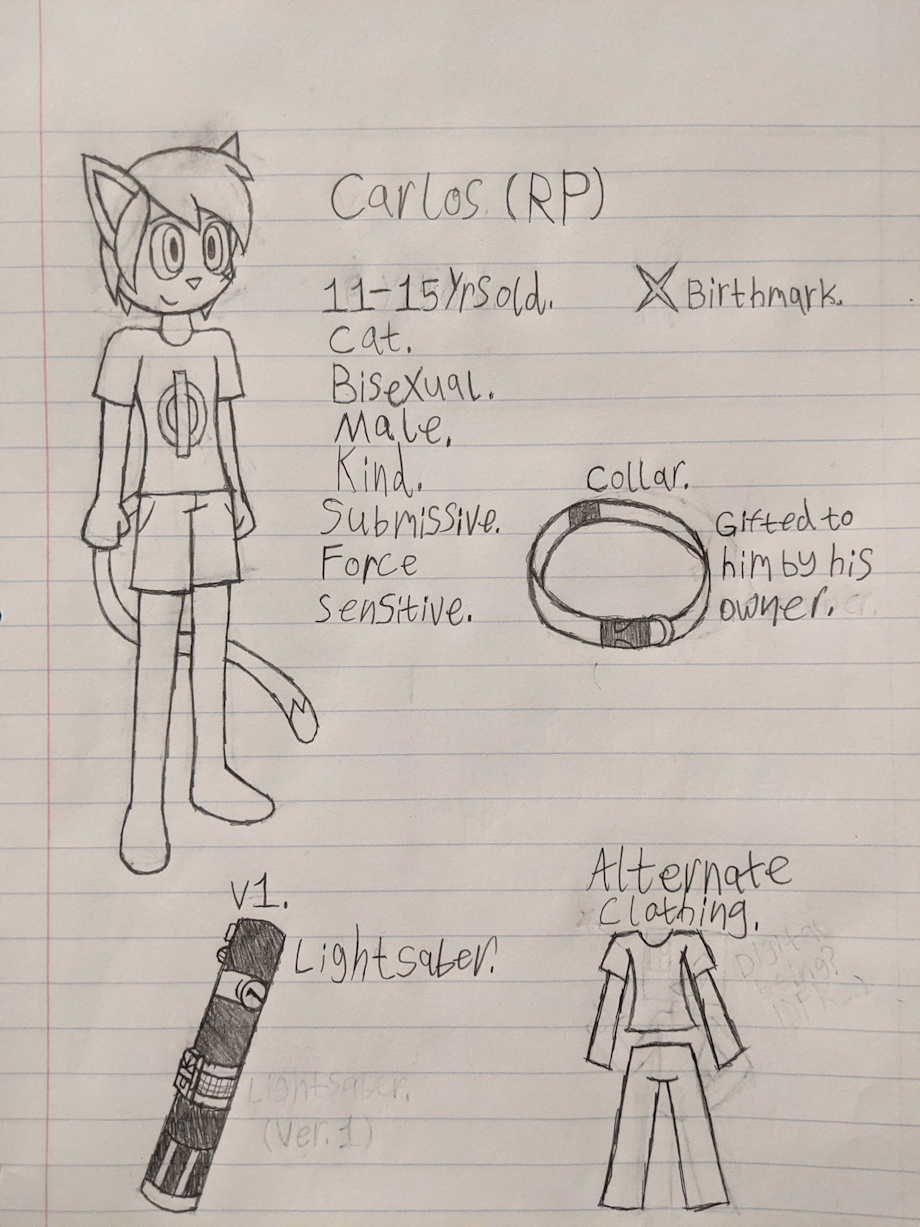 Carlos (RP)
11-15 yrs old.
Cat.
Bisexual.
Male.
Kind.
Submissive.
Force
sensitive.
Birthmark.
Collar.
Gifted to
him by his
owner.
V1.
Lightsaber.
Lightsaber.
(Ver. 1)
Alternate
Clothing.
Digital
being?